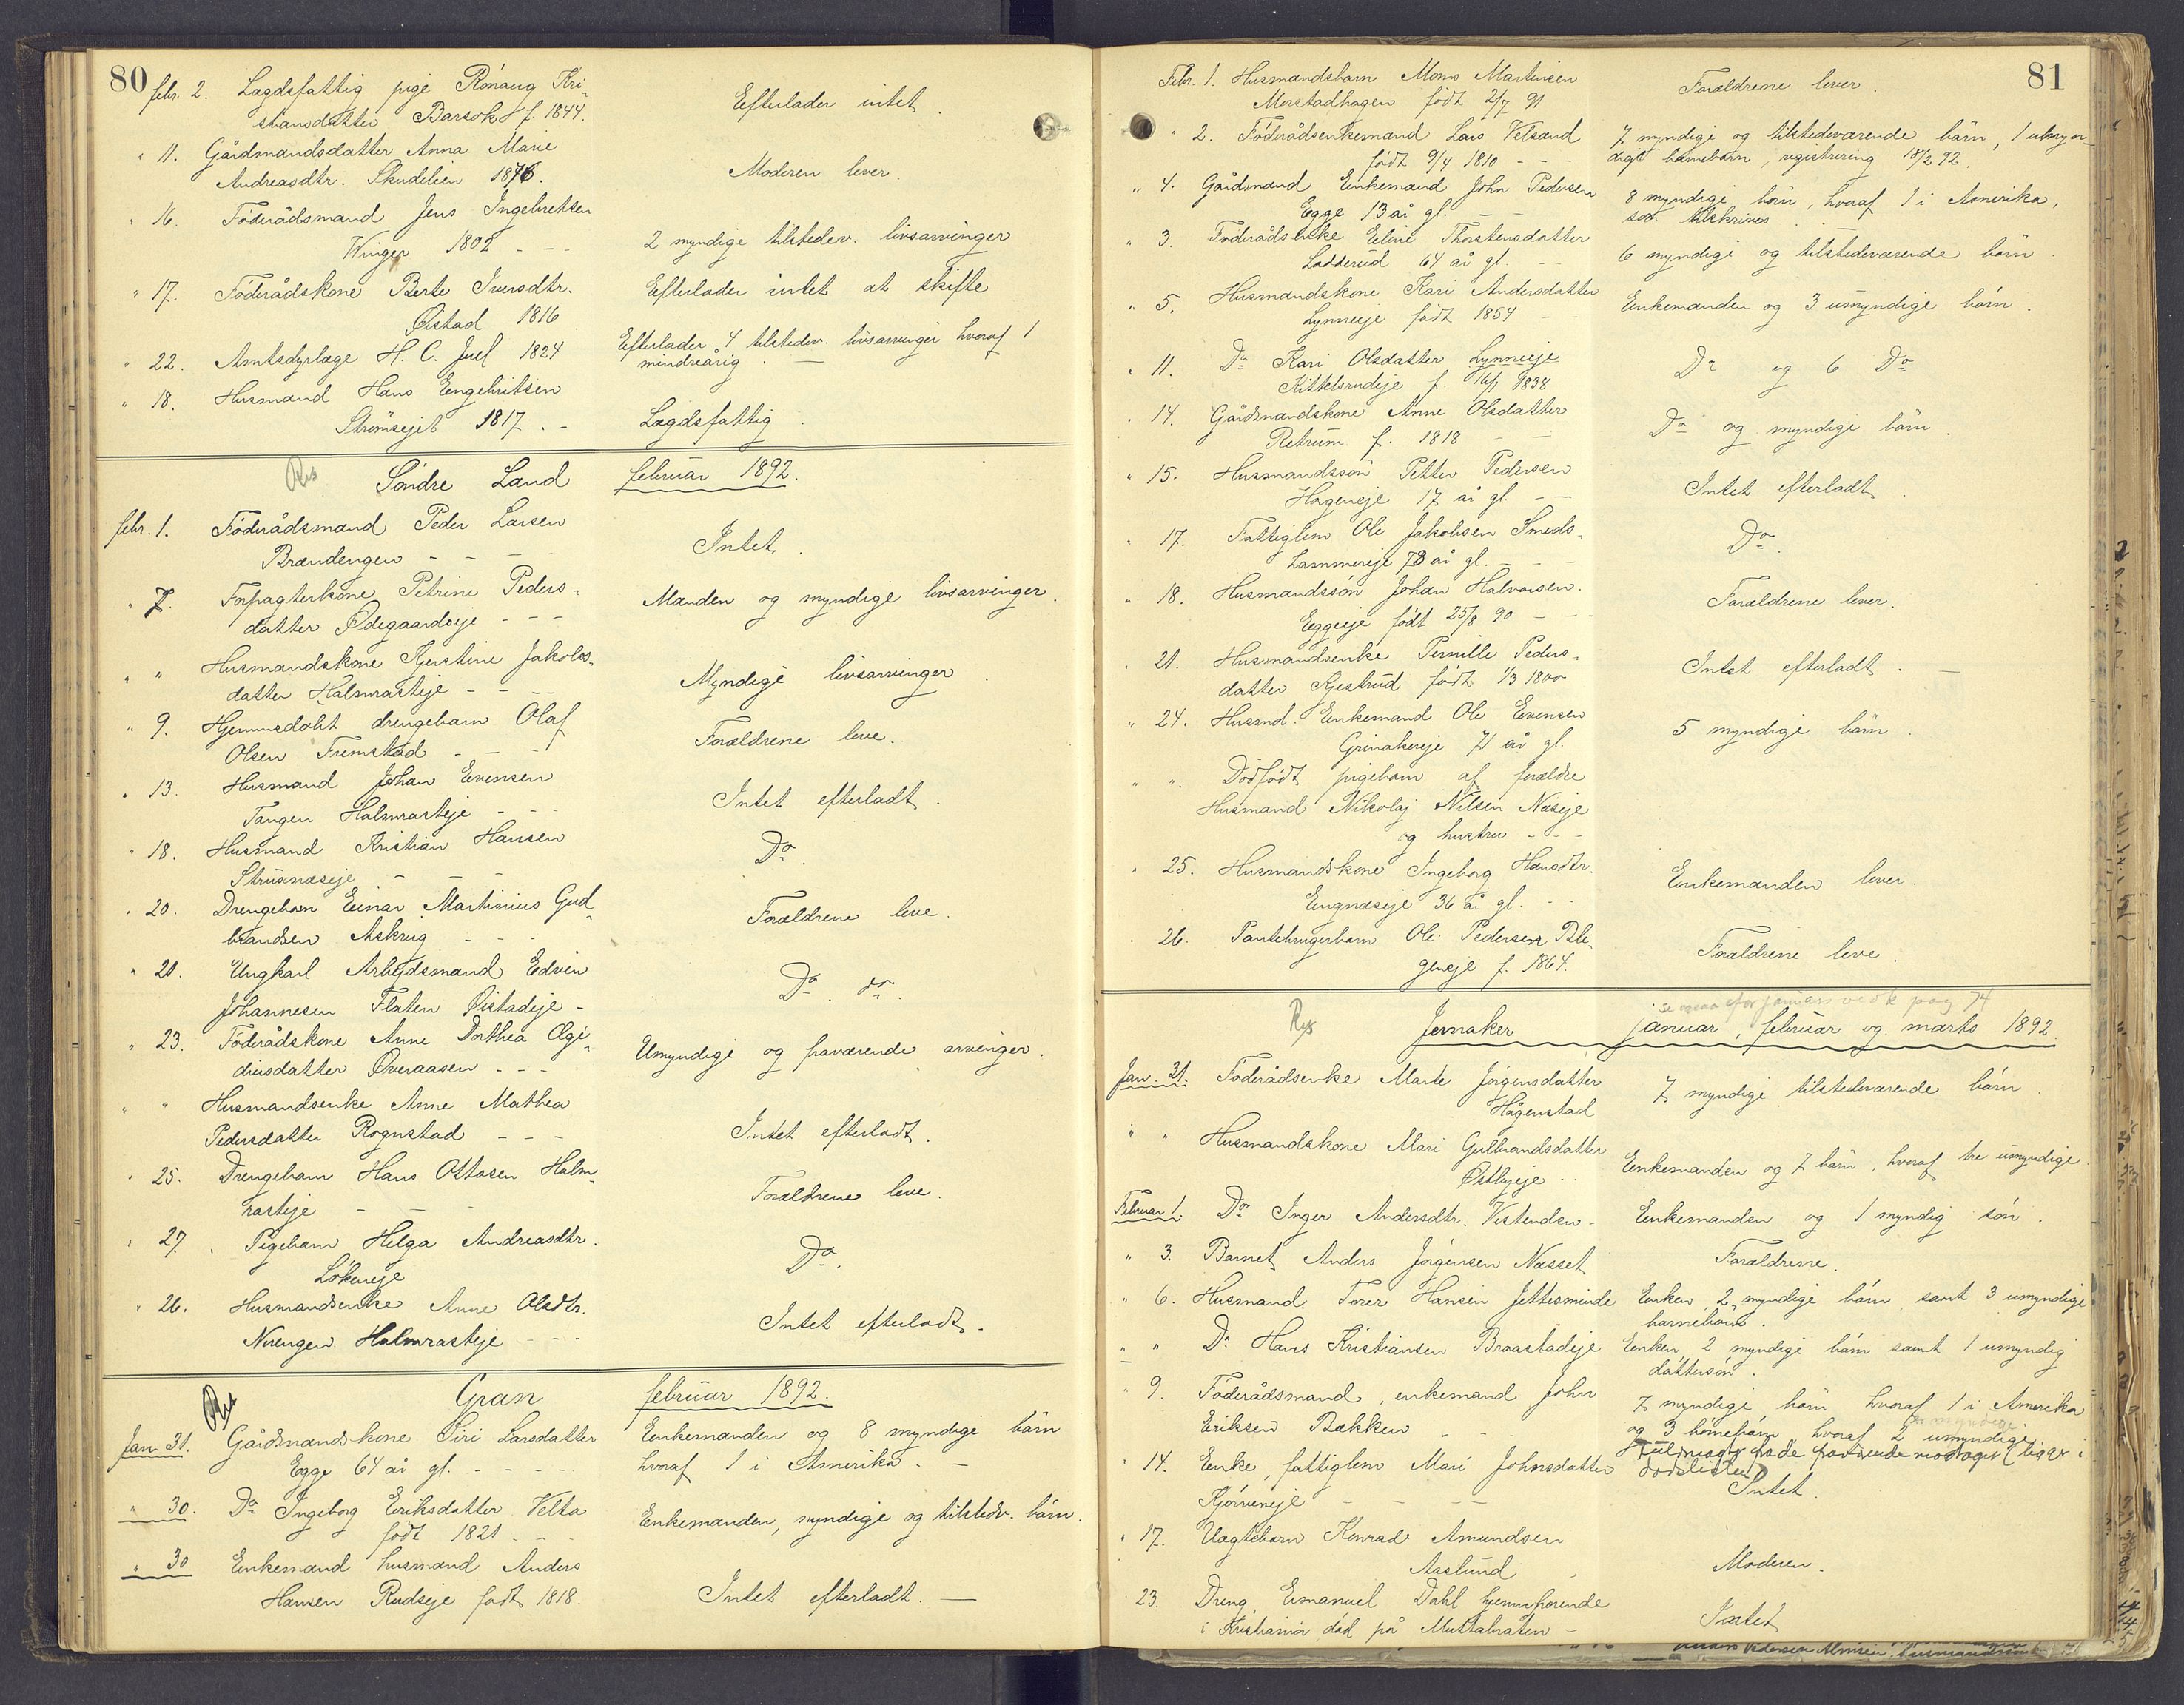 80
febr. 2. Lægdsfattig pige Rönaug Kri-
stiansdatter Barsok f. 1844. Efterlader intet.
" 11. Gårdmandsdatter Anna Marie
Andreasdtr. Skudelien 1876. Moderen lever.
" 16. Föderådsmand Jens Ingebretsen
Winger 1802 - - 2 myndige tilstedev. livsarvinger
" 17. Föderådskone Berte Iversdtr. Efterlader intet at skifte
Østad 1816
" 22. Amtsdyrlæge H. C. Juel 1824 Efterlader 4 tilstedev. livsarvinger hvoraf 1
mindreårig. —
" 18. Husmand Hans Engebritsen
Strömsejet 1817. - Lægdsfattig.
Söndre Land februar 1892.
febr. 1. Föderådsmand Peder Larsen
Brændengen - - - Intet.
" 7. Forpagterkone Petrine Peders-
datter Ødegaardseje - - - Manden og myndige livsarvinger.
" " Husmandskone Kjerstine Jakobs-
datter Halmrasteje - - - Myndige livsarvinger.
" 9. Hjemmedøbt drengebarn Olaf
Olsen Fremstad - - - Forældrene leve.
" 13. Husmand Johan Evensen
Tangen Halmrasteje - - - Intet efterladt.
" 18. Husmand Kristian Hansen
Strüxnæseje - - - Do.
" 20. Drengebarn Einar Martinius Gud-
brandsen Askrug - - - Forældrene leve.
" 20. Ungkarl Arbejdsmand Edvin
Johannesen Flaten Øistadeje - Do. do.
" 23. Föderådskone Anne Dorthea Ægi-
diusdatter Øveraasen - - - Umyndige og fraværende arvinger.
" " Husmandsenke Anne Mathea
Pedersdatter Rognstad - - - Intet efterladt.
" 25. Drengebarn Hans Ottosen Halm-
rasteje - - - Forældrene leve.
" 27. Pigebarn Helga Andreasdtr.
Lökeneje Do.
" 26. Husmandsenke Anne Olsdtr.
Nerengen Halmrasteje - - - Intet efterladt.
Gran februar 1892.
Jan. 31. Gårdmandskone Siri Larsdatter Enkemanden og 8 myndige børn
Egge 64 år gl. - - - hvoraf 1 i Amerika. —
" 30. Do Ingeborg Eriksdatter Velta
født 1821 - Enkemanden, myndige og tilstedv. børn.
" 30 Enkemand husmand Anders
Hansen Rudseje født 1818. Intet efterladt. —
81
Febr. 1. Husmandsbarn Mons Martinsen
Morstadhagen født 2/7 91 Forældrene lever.
" 2. Föderådsenkemand Lars Velsand 7 myndige og tilstedeværende børn, 1 umyn-
født 9/4 1810 - - digt barnebarn, registrering 18/2 92.
" 4. Gårdmand Enkemand John Pedersen 8 myndige børn, hvoraf 1 i Amerika,
Egge 73 år gl. - - som tilskrives
" 3. Föderådsenke Eline Thorstensdatter
Ladderud 64 år gl. - - 6 myndige og tilstedeværende børn.
" 5. Husmandskone Kari Andersdatter
Lynneeje født 1854 - Enkemanden og 3 umyndige börn.
" 11. Do Kari Olsdatter Lynneeje
Kittelsrudeje f. 16/1 1838 Do og 6 Do
" 14. Gårdmandskone Anne Olsdatter
Retrum f. 1818 - - Do og myndige børn.
" 15. Husmandssön Petter Pedersen
Hageneje 17 år gl. - - Intet efterladt.
" 17. Fattiglem Ole Jakobsen Smeds-
lammereje 78 år gl. - - - Do.
" 18. Husmandssön Johan Halvorsen.
Eggeeje født 25/8 90 - - Forældrene lever.
" 21. Husmandsenke Pernille Peders-
datter Kjestrud født 1/3 1800 Intet efterladt. —
" 24. Husmd. Enkemand Ole Evensen
Grinakereje 71 år gl. 5 myndige børn.
" ". Dødfødt pigebarn af forældre
Husmand Nikolaj Nilsen Næseje
og hustru - - -
" 25. Husmandskone Ingeborg Hansdtr.
Engnæseje 36 år gl. - - Enkemanden lever.
" 26. Pantebrugerbarn Ole Pedersen Ble-
geneje f. 1864. Forældrene leve.
se ogsaa for januars vedk pag 74
Jevnaker januar, februar og marts 1892
Jan. 31. Föderådsenke Marte Jörgensdatter
Hågenstad 7 myndige tilstedeværende børn.
" " Husmandskone Mari Gulbrandsdatter
Østbyeje - - Enkemanden og 7 børn, hvoraf tre umyndige.
Februar 1. Do Inger Andersdtr. Vestenden - Enkemanden og 1 myndig sön.
" 3. Barnet Anders Jörgensen Næsset Forældrene.
" 6. Husmand Torer Hansen Jettesminde Enken, 2 myndige børn, samt 3 umyndige
barnebørn.
" " Do Hans Kristiansen Braastadeje Enken, 2 myndige børn samt 1 umyndig
dattersön.
" 9. Föderådsmand, enkemand John 7 myndige børn hvoraf 1 i Amerika
Eriksen Bækken - - og 3 hvoraf 2 umyndige.
" 14. Enke, fattiglem Mari Johnsdatter
Kjörveneje - - - Intet.
" 17. Uægtebarn Konrad Amundsen
Aaslund Moderen.
23. Dreng Emanuel Dahl hjemmehørende
i Kristiania död på Muttatraten - Intet